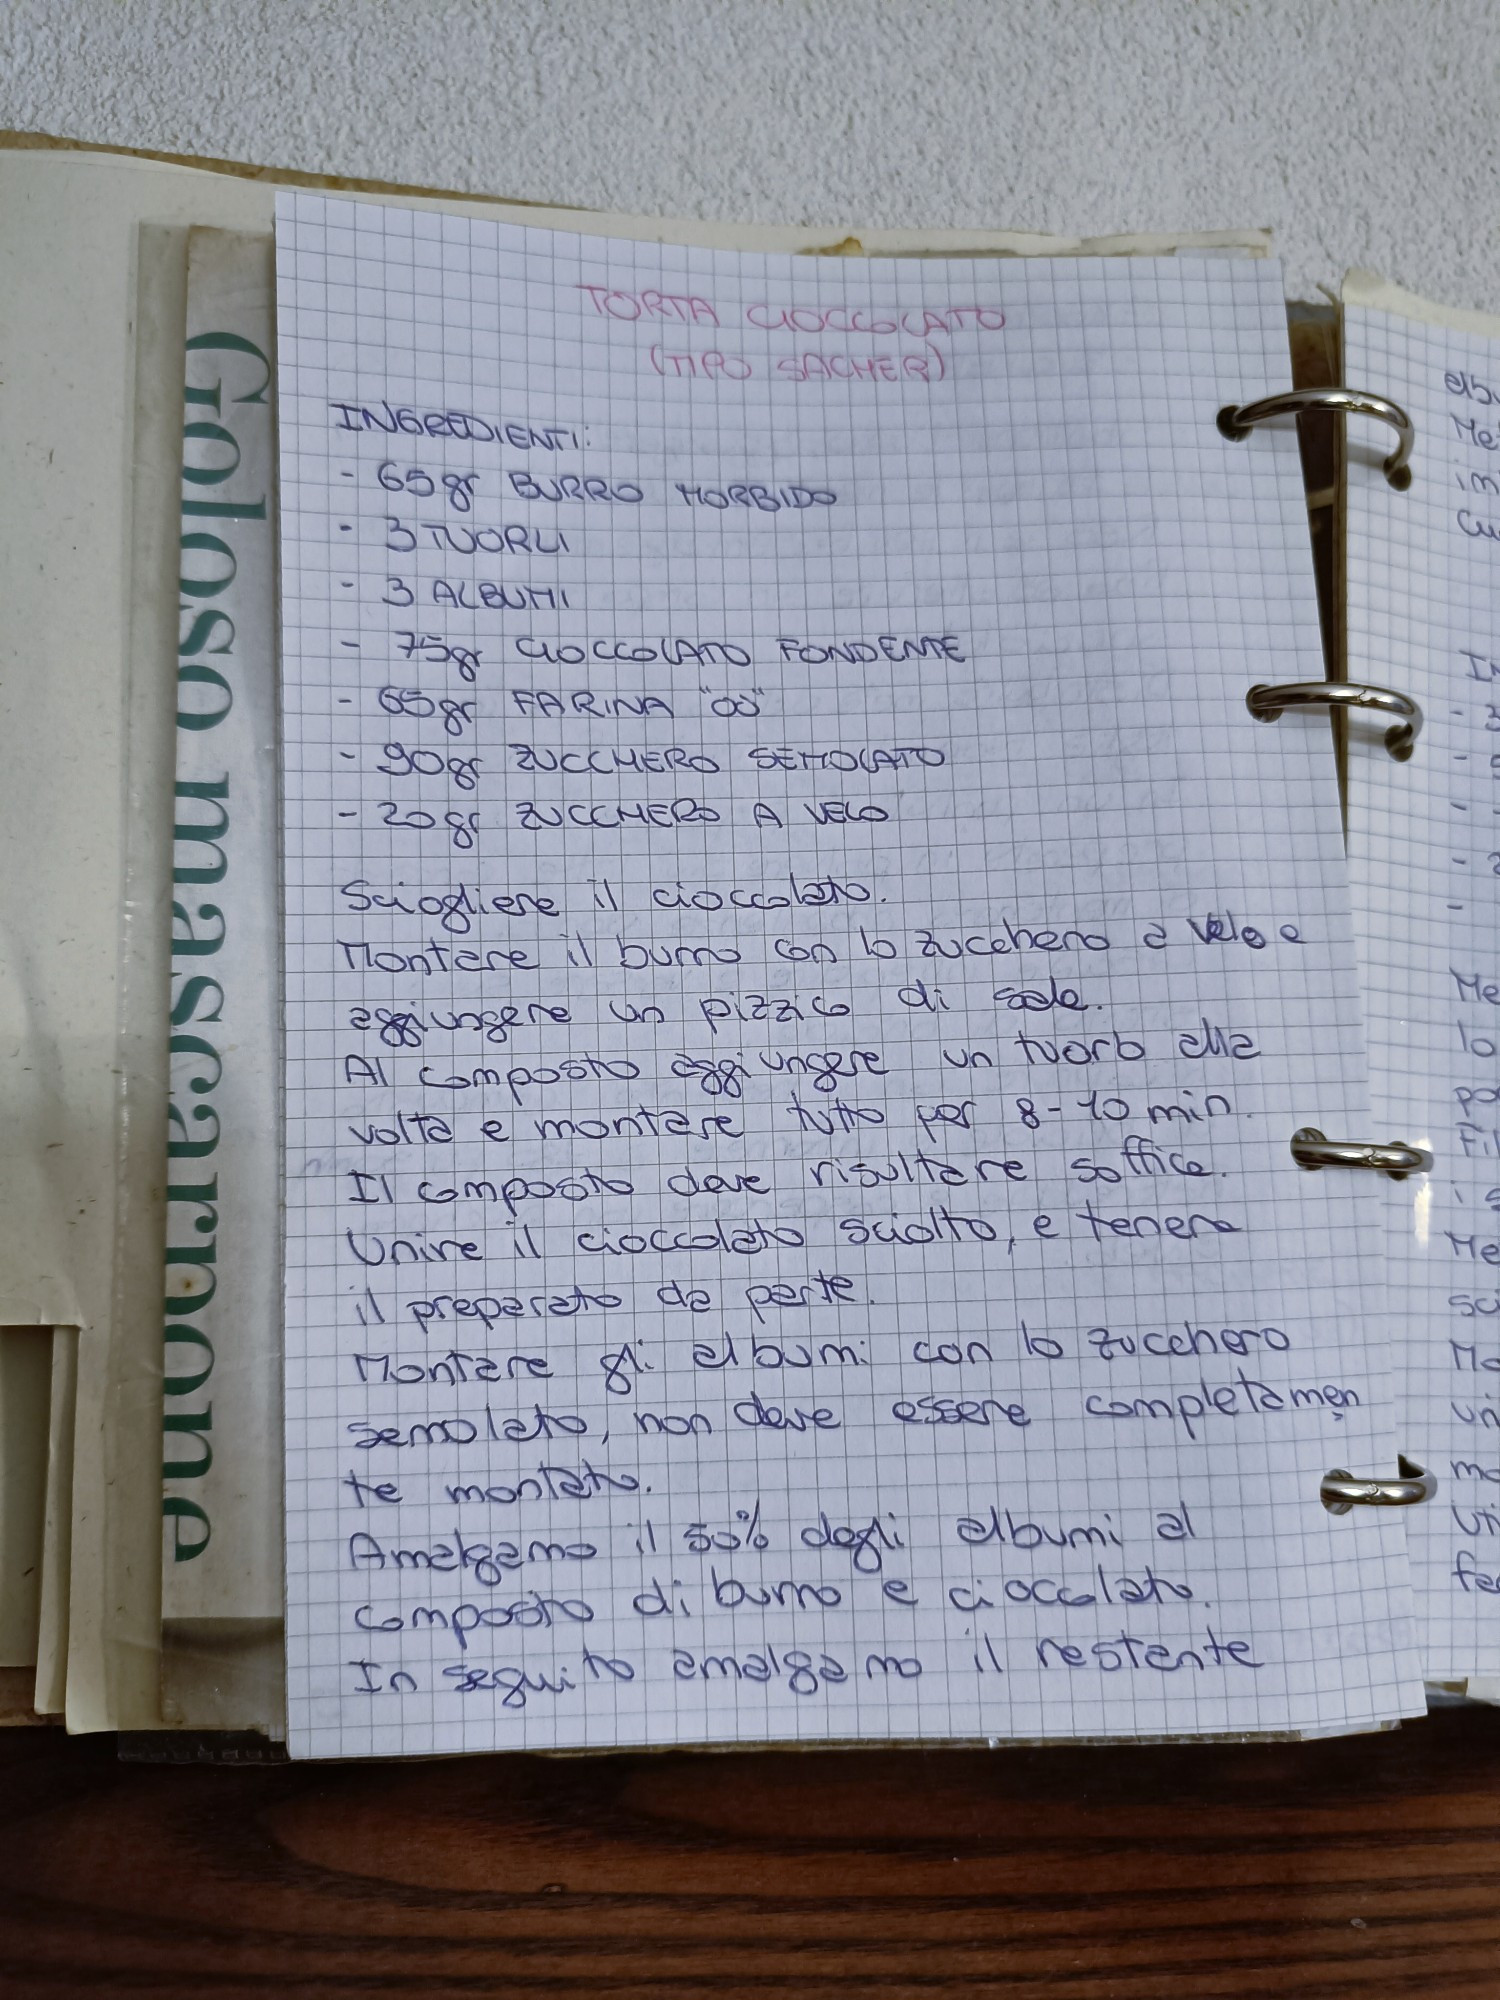 Goloso mascarpone
TORTA CIOCCOLATO
(TIPO SACHER)
INGREDIENTI:
- 65gr BURRO MORBIDO
- 3 TUORLI
- 3 ALBUMI
- 75gr CIOCCOLATO FONDENTE
- 65gr FARINA "00"
- 90gr ZUCCHERO SEMOLATO
- 20gr ZUCCHERO A VELO
Sciogliere il cioccolato.
Montare il burro con lo zucchero a velo e
aggiungere un pizzico di sale.
Al composto aggiungere un tuorlo alla
volta e montare tutto per 8-10 min.
Il composto deve risultare soffice.
Unire il cioccolato sciolto, e tenere
il preparato da parte.
Montare gli albumi con lo zucchero
semolato, non deve essere completamen
te montato.
Amalgamo il 50% degli albumi al
composto di burro e cioccolato.
In seguito amalgamo il restante
Me
im
In
- 3
-
-
- 2
-
Me
lo
po
Fil
i
Me
sc
Mo
un
mo